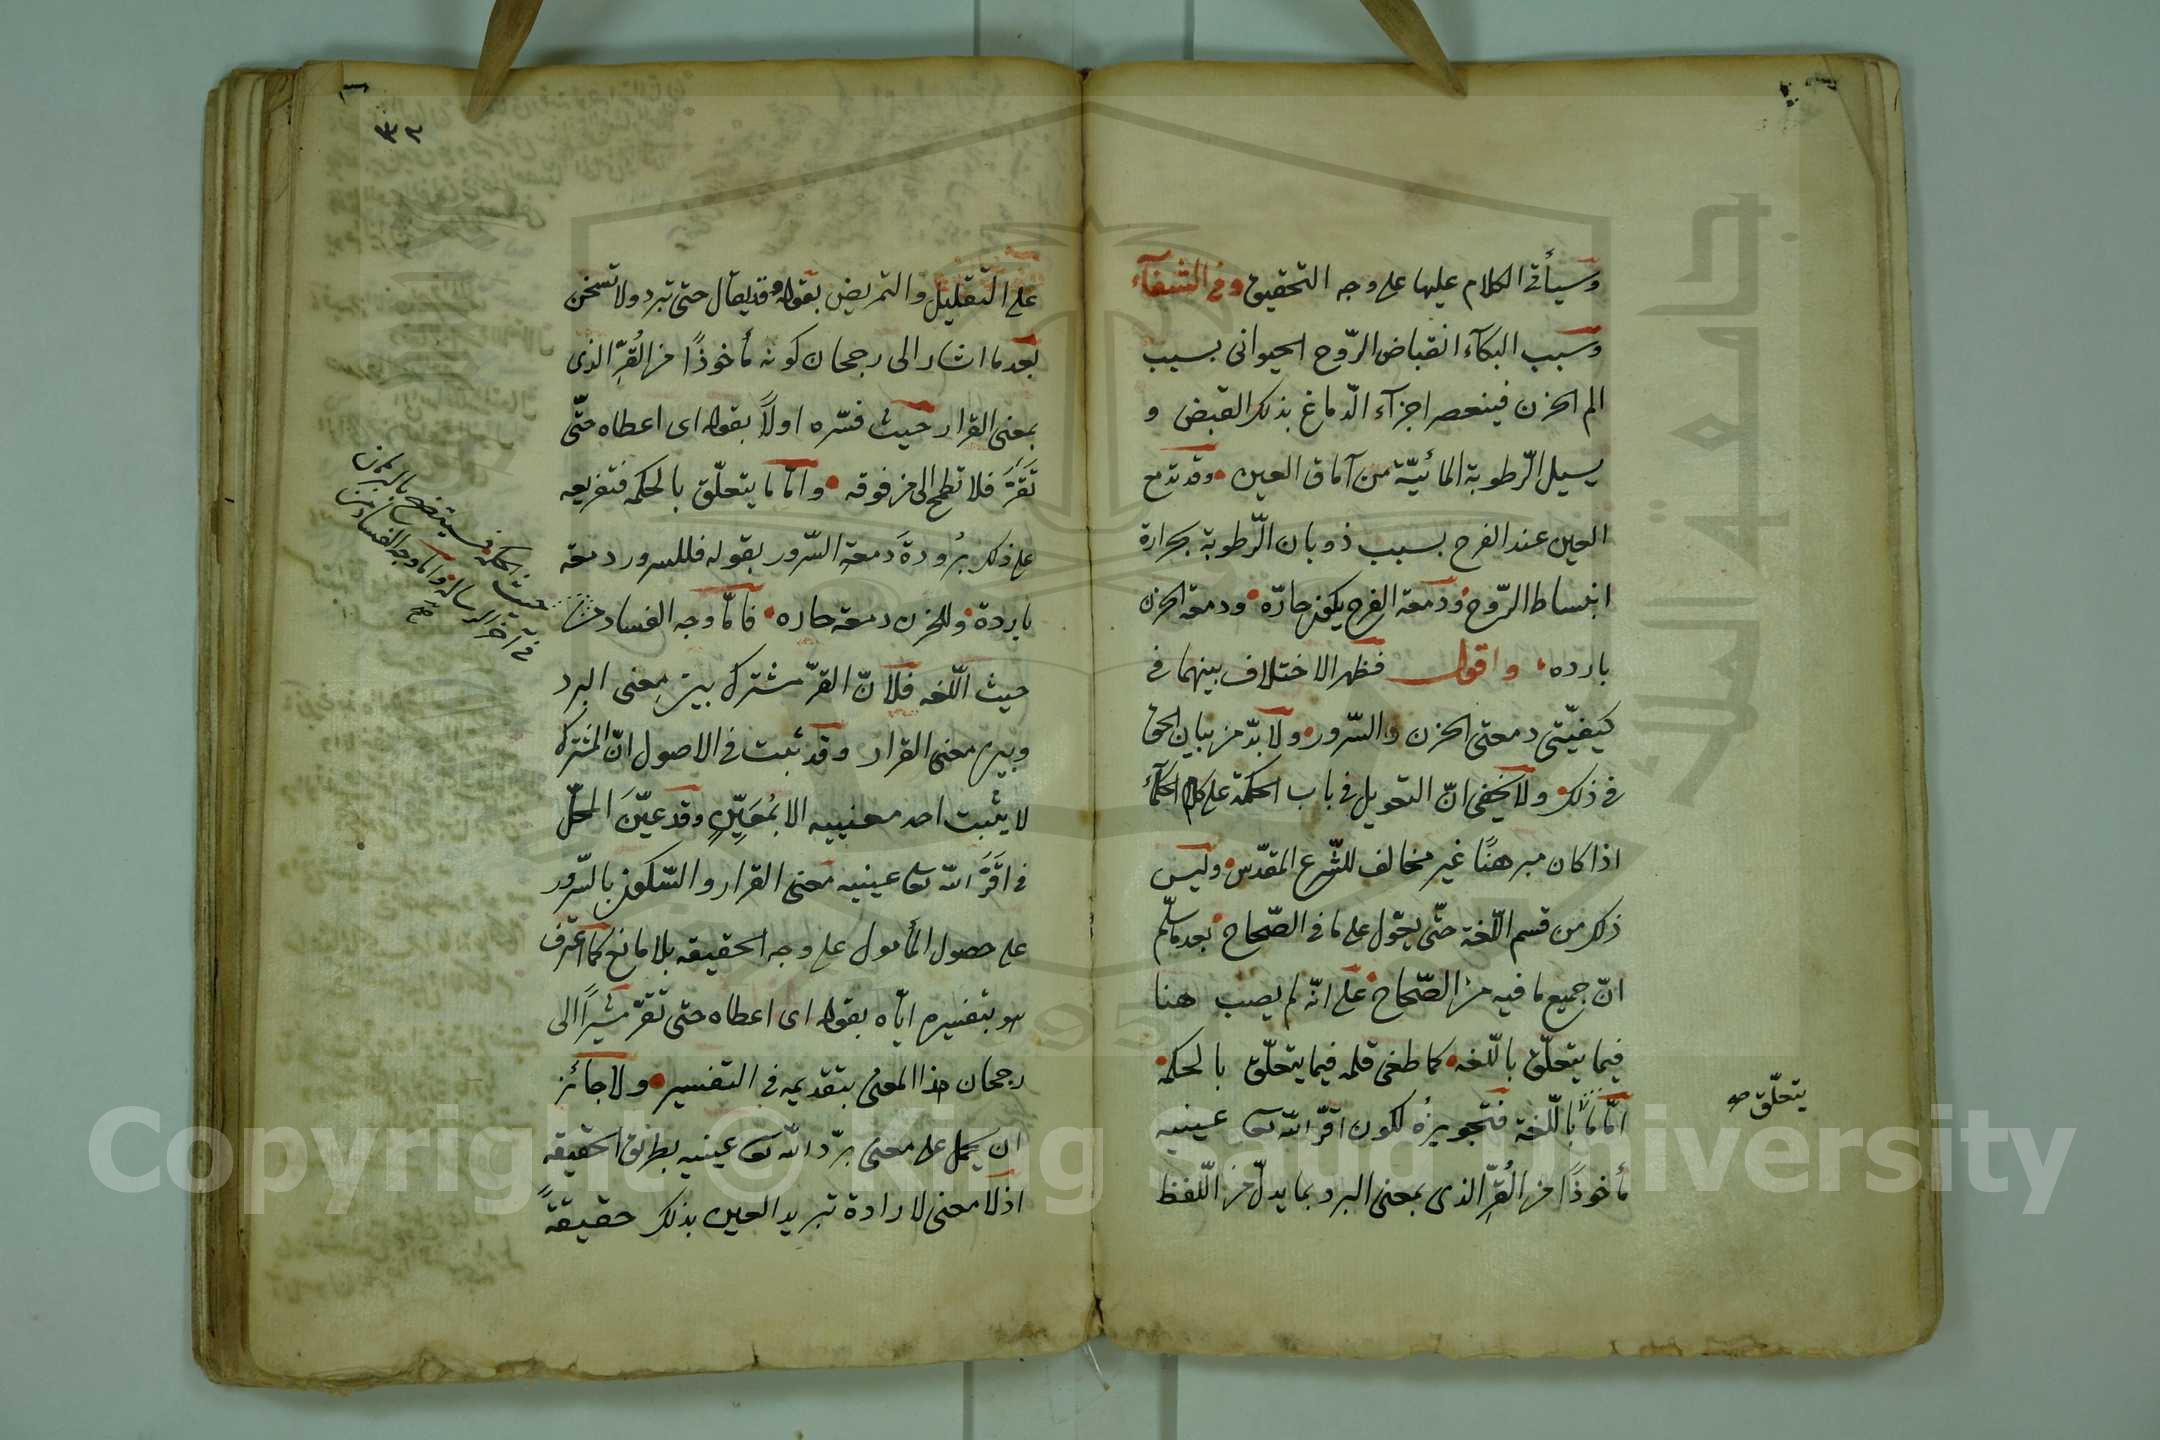 وسيأتي الكلام عليها على وجه التحقيق وفي الشفآء
وسبب البكآء انقباض الرّوح الحيوانى بسبب
الم الحزن فينعصر اجزآء الدّماغ بذلك القبض و
يسيل الرّطوبة المائيّة من آماق العين وقد تدمع
العين عند الفرح بسبب ذوبان الرّطوبة بحرارة
انبساط الرّوح ودمعة الفرح يكون حارّه ودمعة الحزن
بارده واقول فظهر الاختلاف بينهما في
كيفيّتى دمعتى الحزن والسّرور ولا بدّ من بيان الحق
في ذلك ولا يخفى انّ التعويل في باب الحكمة على كلام الحكمآء
اذا كان مبرهنًا غير مخالف للشّرع المقدّس وليس
ذلك من قسم اللّغة حتّى يعوّل على ما في الصّحاح بعد ما سلّم
انّ جميع ما فيه من الصّحاح على انّه لم يصب هنا
فيما يتعلّق باللّغه كما طغى قلمه فيما يتعلّق بالحكمه
امّا ما باللّغة فتجويزُه لكون اقرّ الله تعالى عينيه
مأخوذًا من القُرّ الذى بمعنى البرد بما يدلّ من اللّفظ
يتعلّق صح
٣٢
على التقليل والتمريض بقوله وقد يقال حتى تبرد ولا تسخن
بعد ما اشار الى رجحان كونه مأخوذًا من القُرّ الذى
بمعنى القرار حيث فسّره اولاً بقوله اى اعطاه حتّى
تَقَرَّ فلا تطمح الى من فوقه وامّا ما يتعلّق بالحكمه فتفريعه
على ذلك بُرُودةَ دمعة السّرور بقوله فللسرور دمعة
باردة وللحزن دمعة حاره فامّا وجه الفساد من
حيث اللّغه فلانّ القرّ مشترك بين معنى البرد
وبين معنى القرار وقد ثبت في الاصول انّ المشترك
لا يثبت احد معنييه الا بمُعَيِّنٍ وقد عيّن المحلّ
في اقَرَّ الله تعالى عينيه معنى القرار والسّكون بالسّرور
على حصول المأمول على وجه الحقيقه بلا مانع كما اعترف
هو بتفسيره ايّاه بقوله اى اعطاه حتى تقرّ مشيرًا الى
رجحان هذا المعنى بتقديمه في التفسير ولا جائز
ان يحمل على معنى برّد الله تعالى عينيه بطريق الحقيقه
اذ لا معنى لارادة تبريد العين بذلك حقيقةً
حيث الحكمة فسيتضح بالبرهان
في آخر الرساله وامّا وجه الفساد من
صح